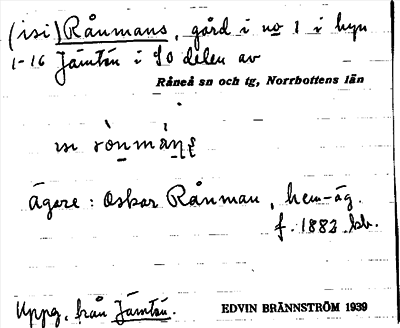 (isi) Rånmans, gård i no 1 i byn
1-16 Jämtön i SO delen av
Råneå sn och tg, Norrbottens län
Ägare: Oskar Rånman, hem-äg.
f. 1883 kb.
Uppg. från Jämtön.
EDVIN BRÄNNSTRÖM 1939